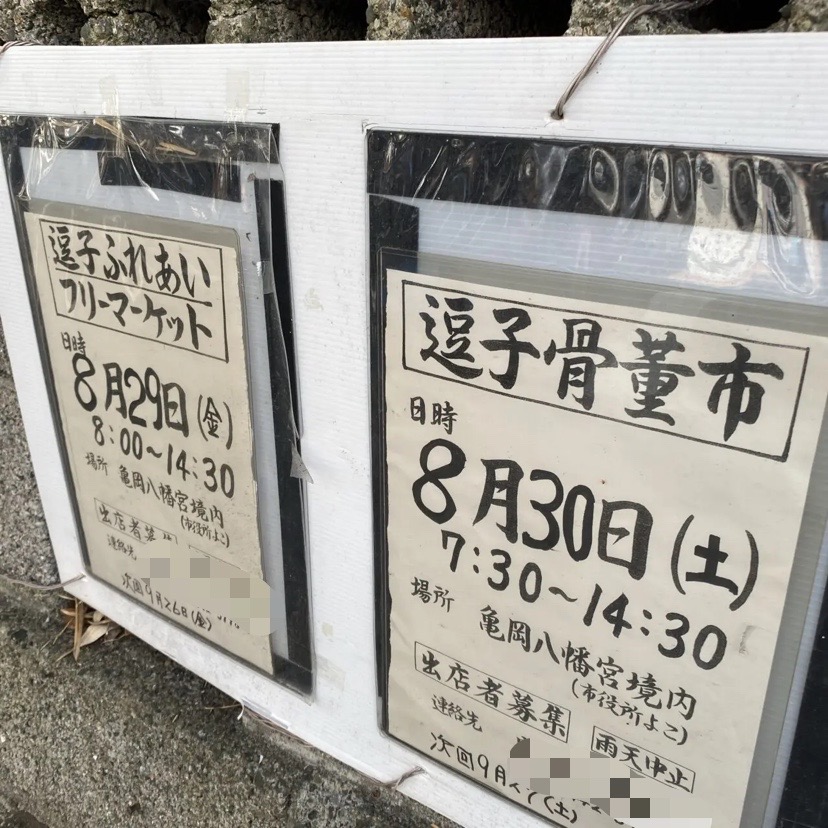 逗子ふれあい
フリーマーケット
日時
8月29日(金)
8:00〜14:30
場所 亀岡八幡宮境内
(市役所よこ)
出店者募
連絡先
次回9月26日(金)
逗子骨董市
日時
8月30日(土)
7:30〜14:30
場所 亀岡八幡宮境内
(市役所よこ)
出店者募集 雨天中止
連絡先
次回9月 (土)